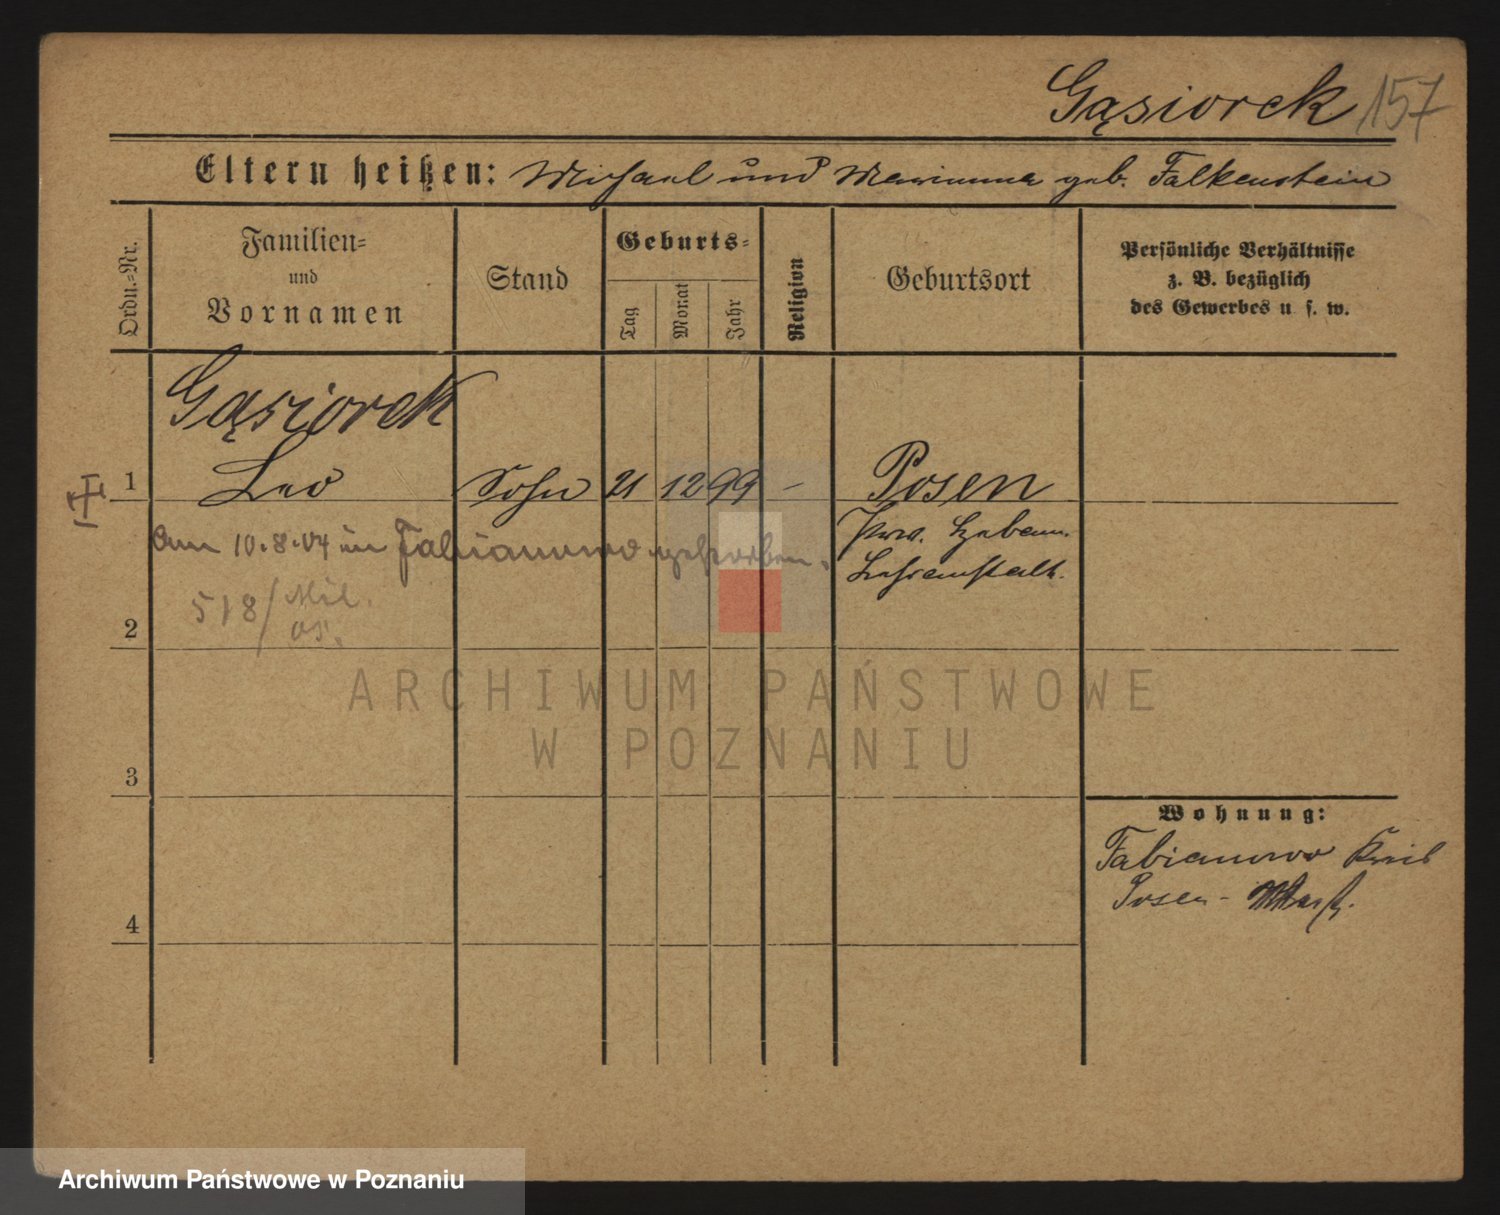 Gąsiorek 157
Eltern heißen: Michael und Marianna geb. Falkenstein
Ordn.-Nr.
Familien-
und
Vornamen
Stand
Geburts-
Tag
Monat
Jahr
Religion
Geburtsort
Persönliche Verhältnisse
z. B. bezüglich
des Gewerbes u. s. w.
Gąsiorek
1 Leo Sohn 21 12 99 – Posen
Prov. Hebam.
Lehranstalt.
Am 10.8.04 in Fabianowo gestorben.
518/Mil.
05.
2
ARCHIWUM PAŃSTWOWE
W POZNANIU
3
Wohnung:
Fabianowo Kreis
Posen-West.
4
Archiwum Państwowe w Poznaniu